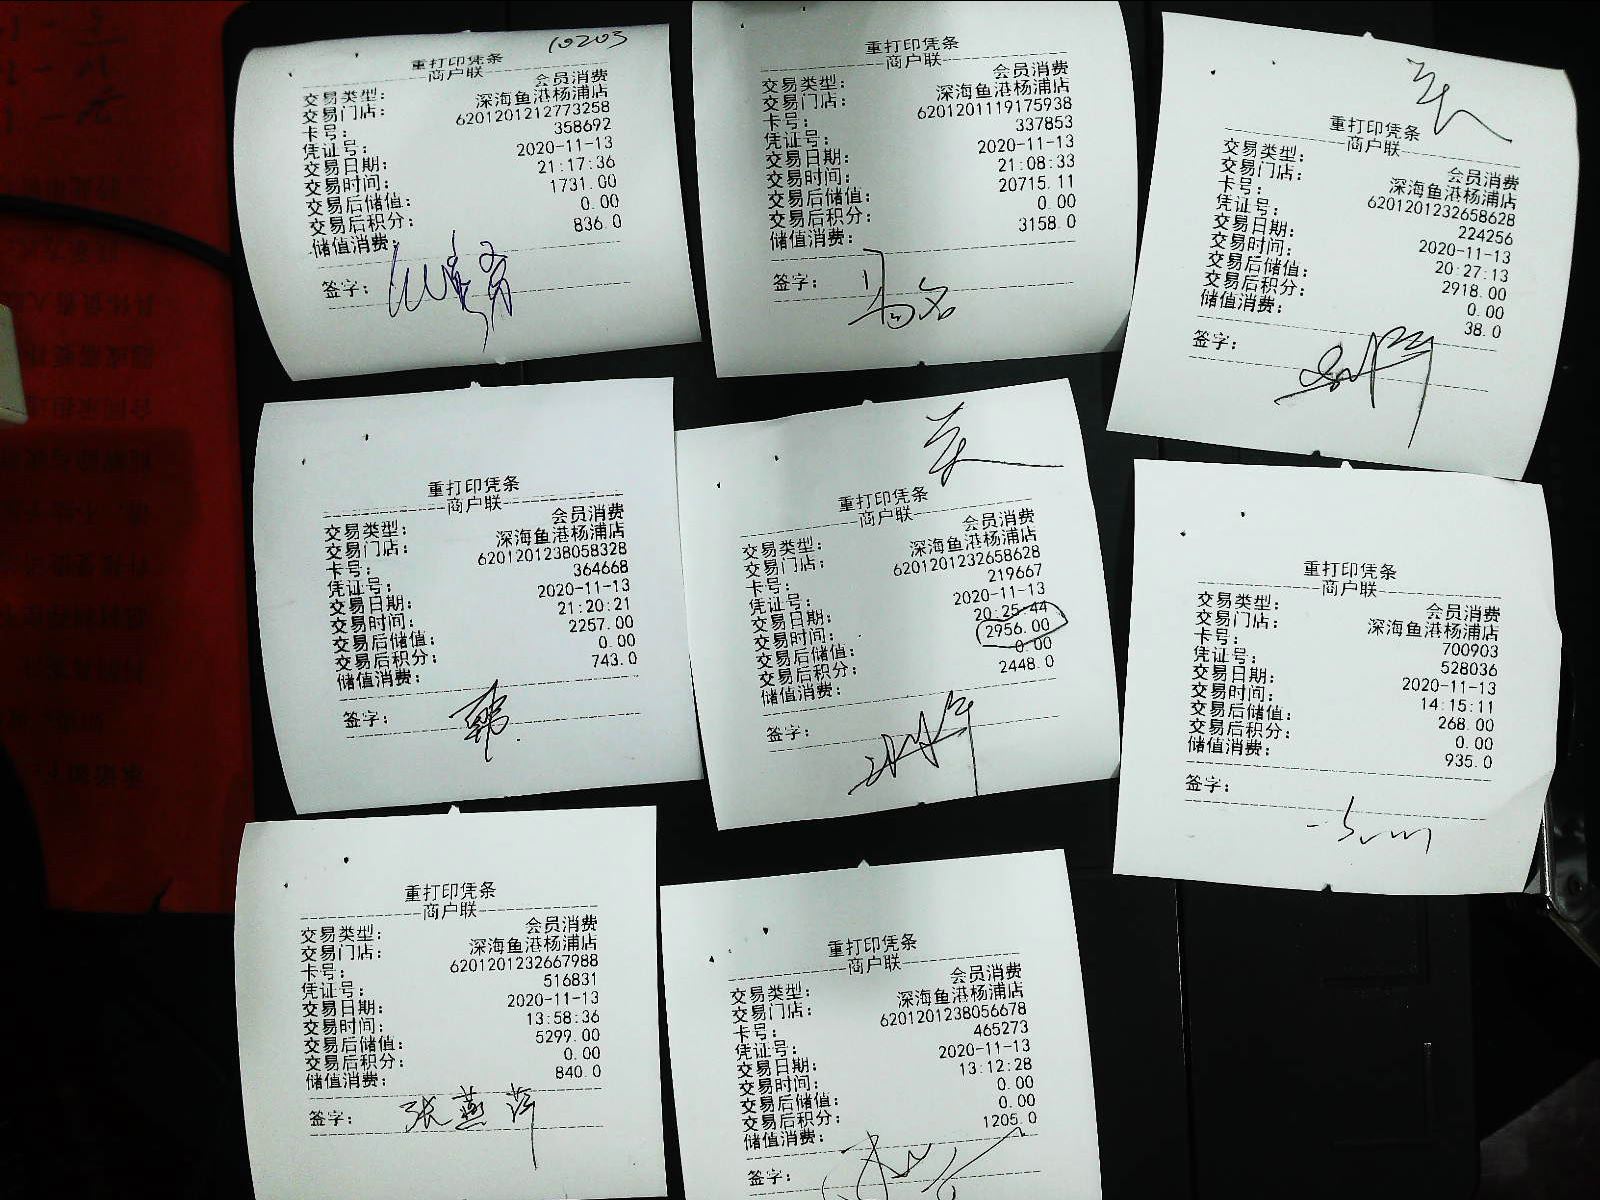 10203
重打印凭条
商户联
交易类型: 会员消费
交易门店: 深海鱼港杨浦店
卡号: 6201201212773258
凭证号: 358692
交易日期: 2020-11-13
交易时间: 21:17:36
交易后储值: 1731.00
交易后积分: 0.00
储值消费: 836.0
签字:
重打印凭条
商户联
交易类型: 会员消费
交易门店: 深海鱼港杨浦店
卡号: 6201201119175938
凭证号: 337853
交易日期: 2020-11-13
交易时间: 21:08:33
交易后储值: 20715.11
交易后积分: 0.00
储值消费: 3158.0
签字:
重打印凭条
商户联
交易类型: 会员消费
交易门店: 深海鱼港杨浦店
卡号: 6201201232658628
凭证号: 224256
交易日期: 2020-11-13
交易时间: 20:27:13
交易后储值: 2918.00
交易后积分: 0.00
储值消费: 38.0
签字:
重打印凭条
商户联
交易类型: 会员消费
交易门店: 深海鱼港杨浦店
卡号: 6201201238058328
凭证号: 364668
交易日期: 2020-11-13
交易时间: 21:20:21
交易后储值: 2257.00
交易后积分: 0.00
储值消费: 743.0
签字: 韩
重打印凭条
商户联
交易类型: 会员消费
交易门店: 深海鱼港杨浦店
卡号: 6201201232658628
凭证号: 219667
交易日期: 2020-11-13
交易时间: 20:25:44
交易后储值: 2956.00
交易后积分: 0.00
储值消费: 2448.0
签字:
重打印凭条
商户联
交易类型: 会员消费
交易门店: 深海鱼港杨浦店
卡号: 700903
凭证号: 528036
交易日期: 2020-11-13
交易时间: 14:15:11
交易后储值: 268.00
交易后积分: 0.00
储值消费: 935.0
签字:
重打印凭条
商户联
交易类型: 会员消费
交易门店: 深海鱼港杨浦店
卡号: 6201201232667988
凭证号: 516831
交易日期: 2020-11-13
交易时间: 13:58:36
交易后储值: 5299.00
交易后积分: 0.00
储值消费: 840.0
签字: 张燕萍
重打印凭条
商户联
交易类型: 会员消费
交易门店: 深海鱼港杨浦店
卡号: 6201201238056678
凭证号: 465273
交易日期: 2020-11-13
交易时间: 13:12:28
交易后储值: 0.00
交易后积分: 0.00
储值消费: 1205.0
签字: